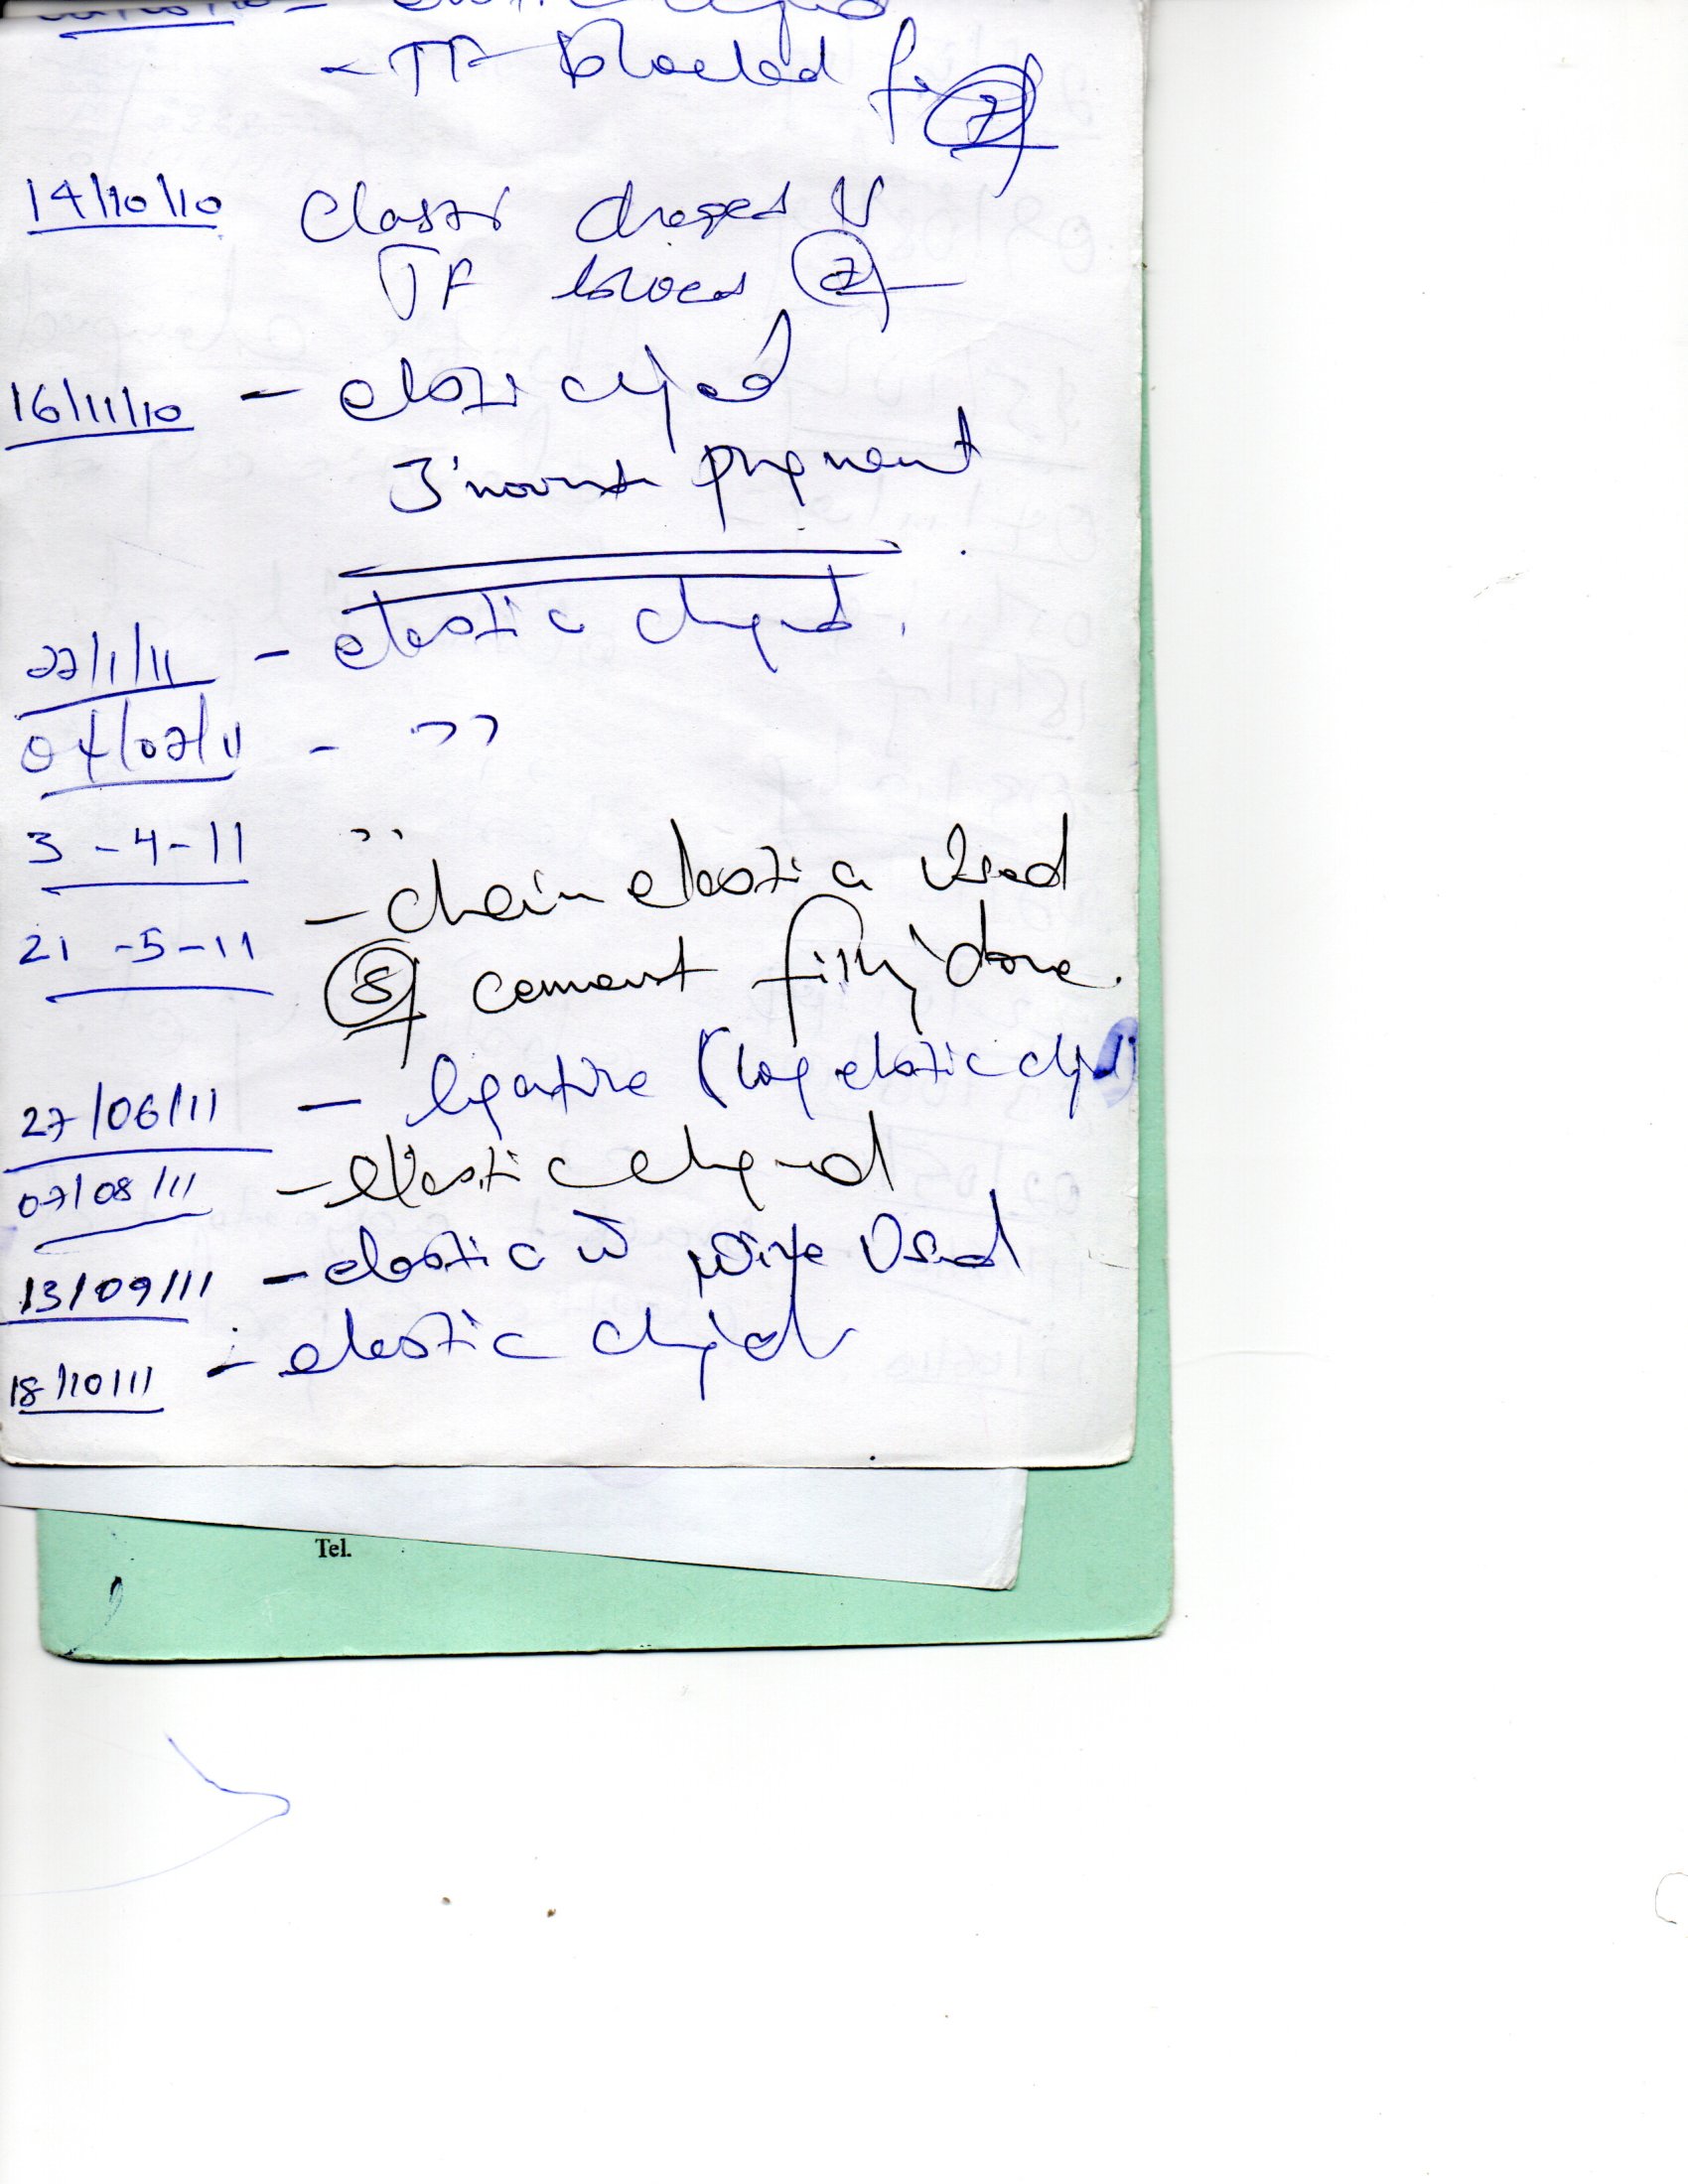 - TF blocked for 7
14/10/10 elastic changed
TF blocked 7
16/11/10 - elastic changed
3 month pregnant
22/1/11 - elastic changed.
04/02/11 - ,,
3 -4-11 ,,
- chain elastic used
21 -5-11 8 cement filling done.
27/06/11 - ligature (
07/08/11 - elastic changed
13/09/11 - elastic w wire used
18/10/11 - elastic changed
Tel.